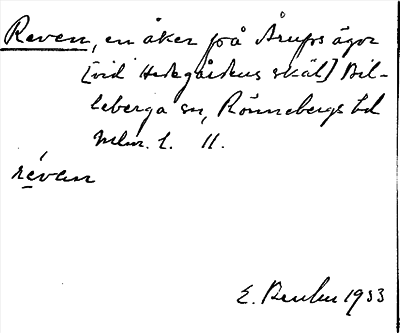 Reven, en åker på Årups ägor
[vid Hedegårdens skäl] Bil-
leberga sn, Rönnebergs hd
Mlm. l. 11.
réven
E. 1933